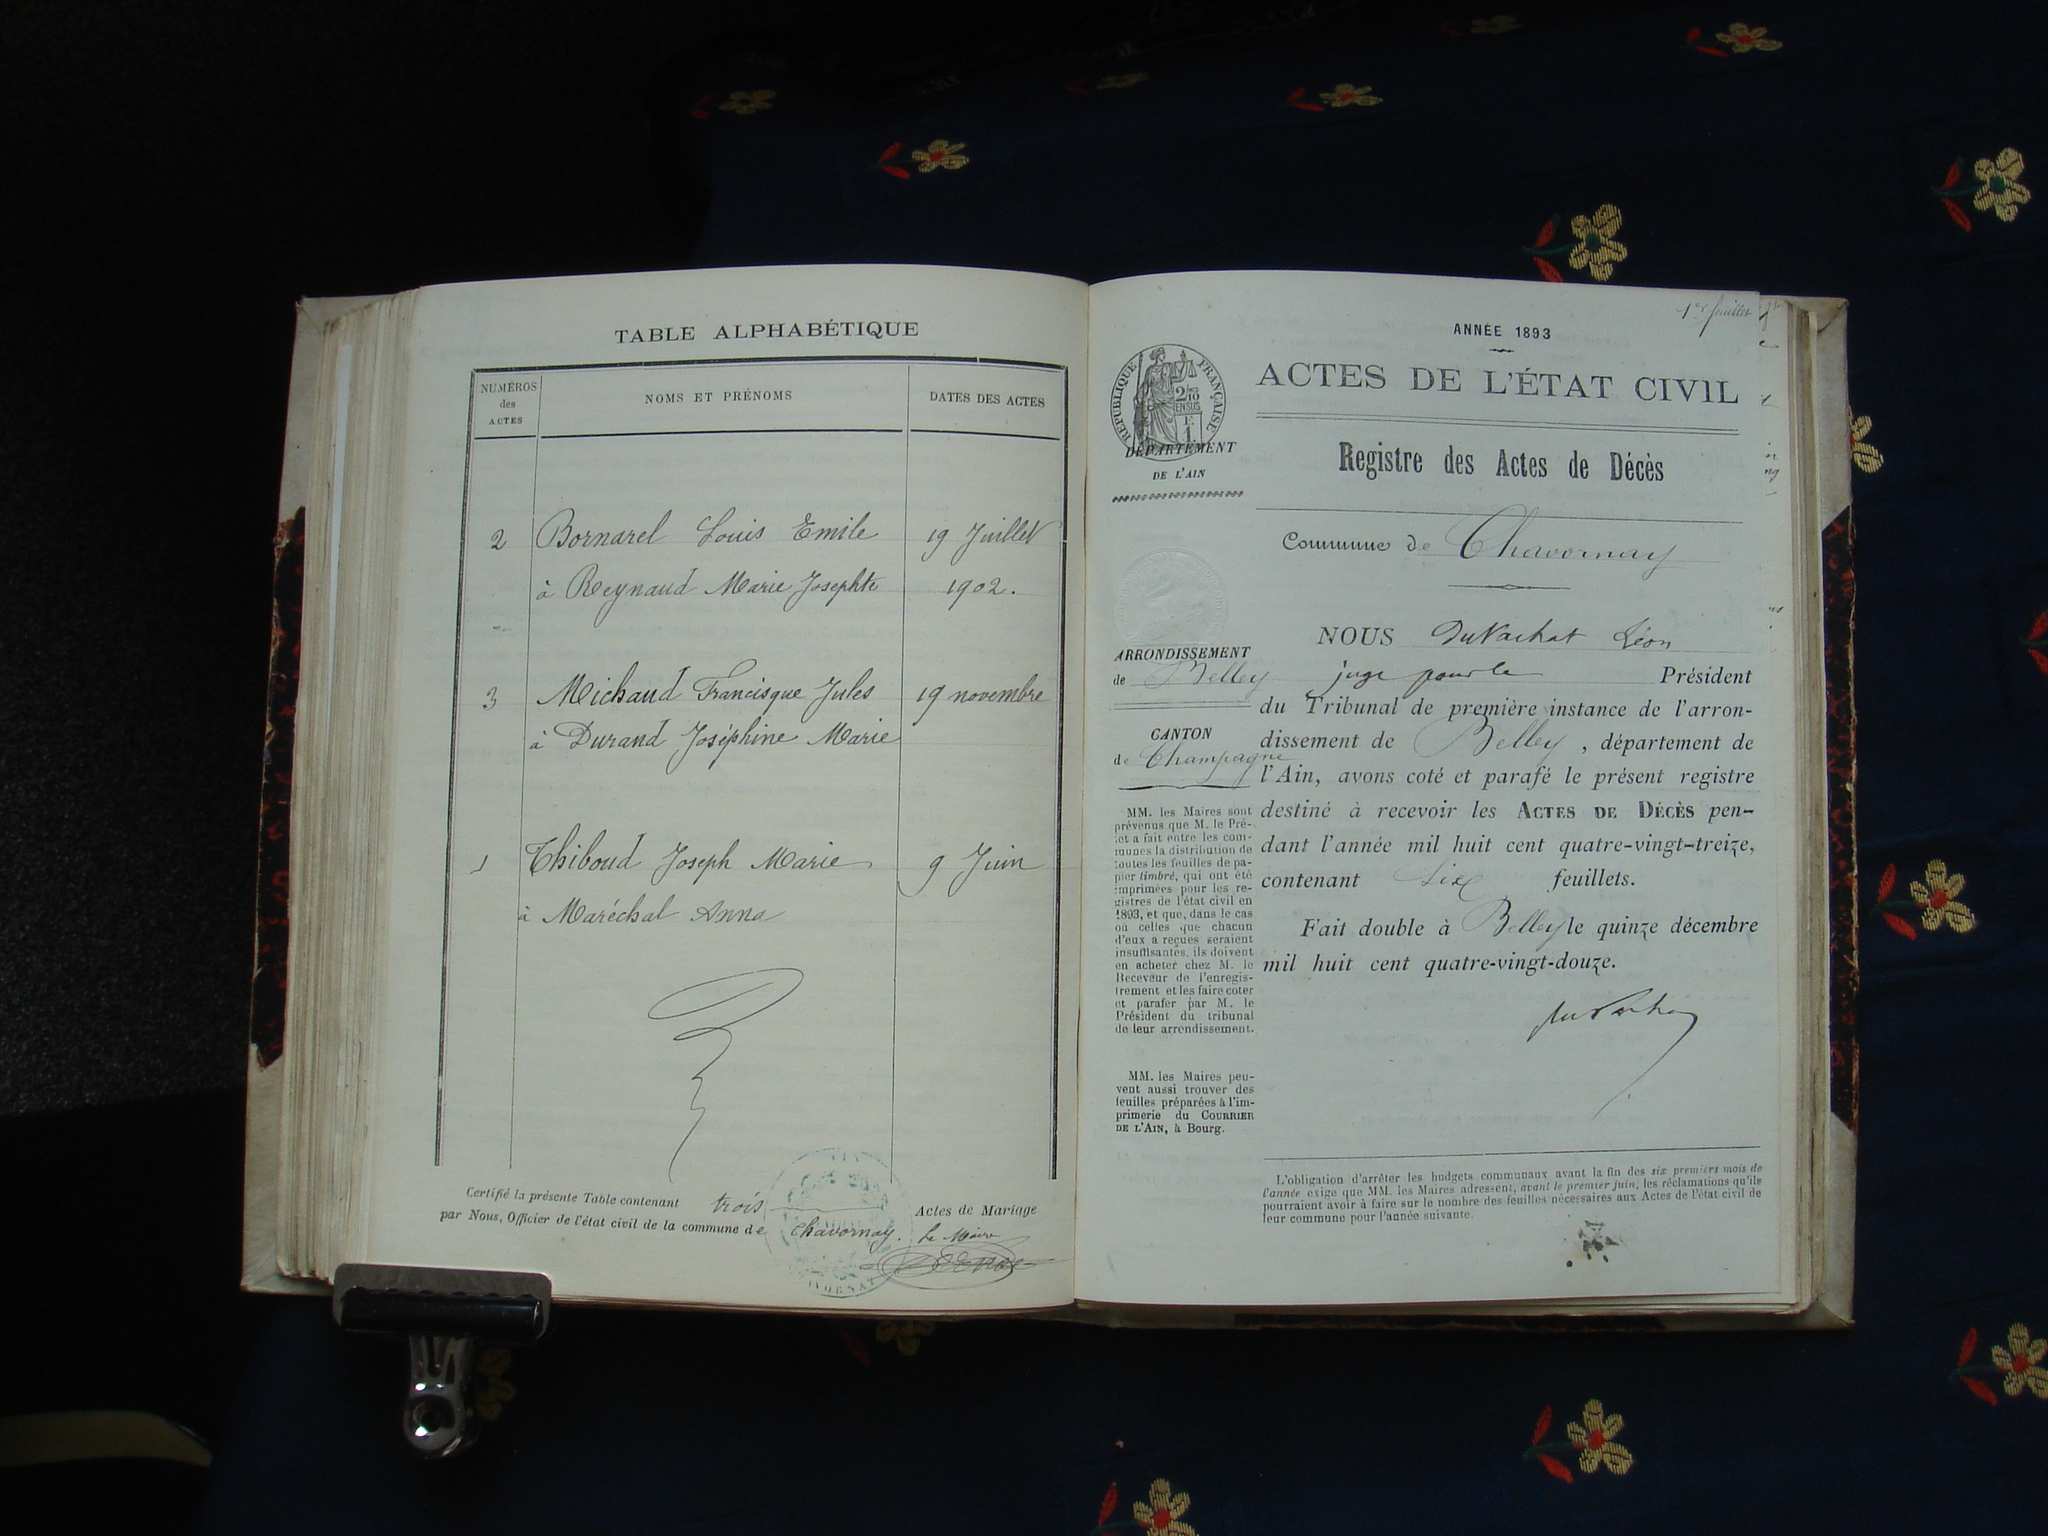 TABLE ALPHABÉTIQUE
NUMÉROS
des
ACTES
NOMS ET PRÉNOMS
DATES DES ACTES
2 Bornarel Louis Emile 19 Juillet
à Reynaud Marie Josephte 1902.
3 Michaud Francisque Jules 19 novembre
à Durand Joséphine Marie
1 Thiboud Joseph Marie 9 Juin
à Maréchal Anna
Certifié la présente Table contenant trois Actes de Mariage
par Nous, Officier de l'état civil de la commune de Chavornay. Le Maire
1er feuillet
ANNÉE 1893
RÉPUBLIQUE FRANÇAISE
2/10
EN SUS
1
DÉPARTEMENT
DE L'AIN
ACTES DE L'ÉTAT CIVIL
Registre des Actes de Décès
Commune de Chavornay
ARRONDISSEMENT
de Belley
CANTON
de Champagne
MM. les Maires sont
prévenus que M. le Pré-
et a fait entre les com-
munes la distribution de
toutes les feuilles de pa-
pier timbré, qui ont été
imprimées pour les re-
gistres de l'état civil en
1893, et que, dans le cas
où celles que chacun
d'eux a reçues seraient
insuffisantes, ils doivent
en acheter chez M. le
Receveur de l'enregis-
trement et les faire coter
et parafer par M. le
Président du tribunal
de leur arrondissement.
MM. les Maires peu-
vent aussi trouver des
feuilles préparées à l'im-
primerie du COURRIER
DE L'AIN, à Bourg.
NOUS DuVachat Léon
juge pour le Président
du Tribunal de première instance de l'arron-
dissement de Belley, département de
l'Ain, avons coté et parafé le présent registre
destiné à recevoir les ACTES DE DÉCÈS pen-
dant l'année mil huit cent quatre-vingt-treize,
contenant six feuillets.
Fait double à Belley le quinze décembre
mil huit cent quatre-vingt-douze.
L'obligation d'arrêter les budgets communaux avant la fin des six premiers mois de
l'année exige que MM. les Maires adressent, avant le premier juin, les réclamations qu'ils
pourraient avoir à faire sur le nombre des feuilles nécessaires aux Actes de l'état civil de
leur commune pour l'année suivante.